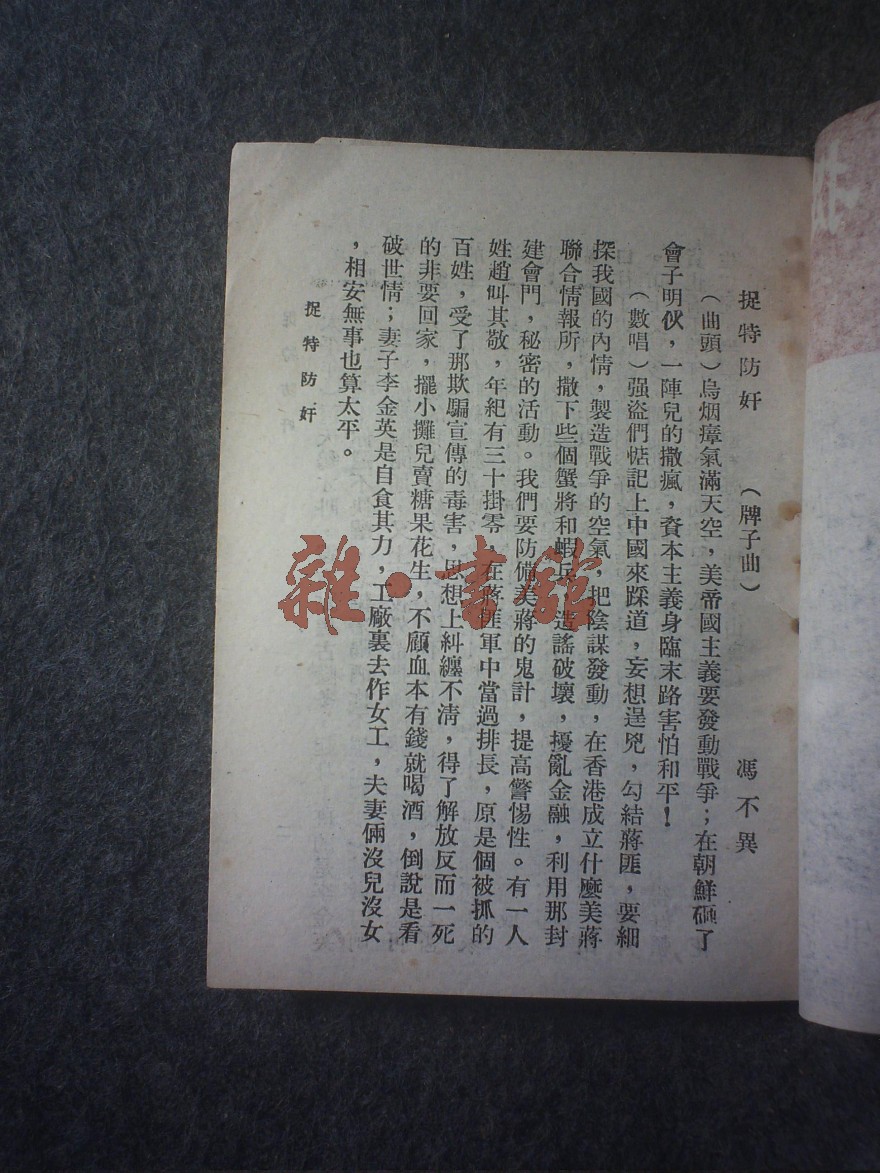 捉特防奸　（牌子曲）　馮不異
（曲頭）烏烟瘴氣滿天空，美帝國主義要發動戰爭；在朝鮮砸了
會子明伙，一陣兒的撒瘋，資本主義身臨末路害怕和平！
（數唱）强盜們惦記上中國來踩道，妄想逞兇，勾結蔣匪，要細
探我國的內情，製造戰爭的空氣，把陰謀發動，在香港成立什麽美蔣
聯合情報所，撒下些個蟹將和蝦兵，造謠破壞，擾亂金融，利用那封
建會門，秘密的活動。我們要防備美蔣的鬼計，提高警惕性。有一人
姓趙叫其敬，年紀有三十掛零，在蔣匪軍中當過排長，原是個被抓的
百姓，受了那欺騙宣傳的毒害，思想上糾纏不淸，得了解放反而一死
的非要回家，擺小攤兒賣糖果花生，不顧血本有錢就喝酒，倒說是看
破世情；妻子李金英是自食其力，工廠裏去作女工，夫妻倆沒兒沒女
，相安無事也算太平。
捉特防奸
雜·書館